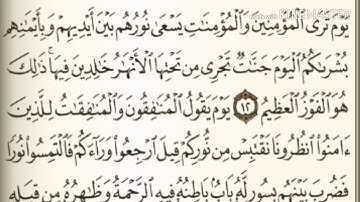 Made with KINEMASTER
يَوْمَ تَرَى ٱلْمُؤْمِنِينَ وَٱلْمُؤْمِنَٰتِ يَسْعَىٰ نُورُهُم بَيْنَ أَيْدِيهِمْ وَبِأَيْمَٰنِهِم
بُشْرَىٰكُمُ ٱلْيَوْمَ جَنَّٰتٌ تَجْرِى مِن تَحْتِهَا ٱلْأَنْهَٰرُ خَٰلِدِينَ فِيهَا ۚ ذَٰلِكَ
هُوَ ٱلْفَوْزُ ٱلْعَظِيمُ ١٢ يَوْمَ يَقُولُ ٱلْمُنَٰفِقُونَ وَٱلْمُنَٰفِقَٰتُ لِلَّذِينَ
ءَامَنُوا۟ ٱنظُرُونَا نَقْتَبِسْ مِن نُّورِكُمْ قِيلَ ٱرْجِعُوا۟ وَرَآءَكُمْ فَٱلْتَمِسُوا۟ نُورًا
فَضُرِبَ بَيْنَهُم بِسُورٍ لَّهُۥ بَابٌۢ بَاطِنُهُۥ فِيهِ ٱلرَّحْمَةُ وَظَٰهِرُهُۥ مِن قِبَلِهِ